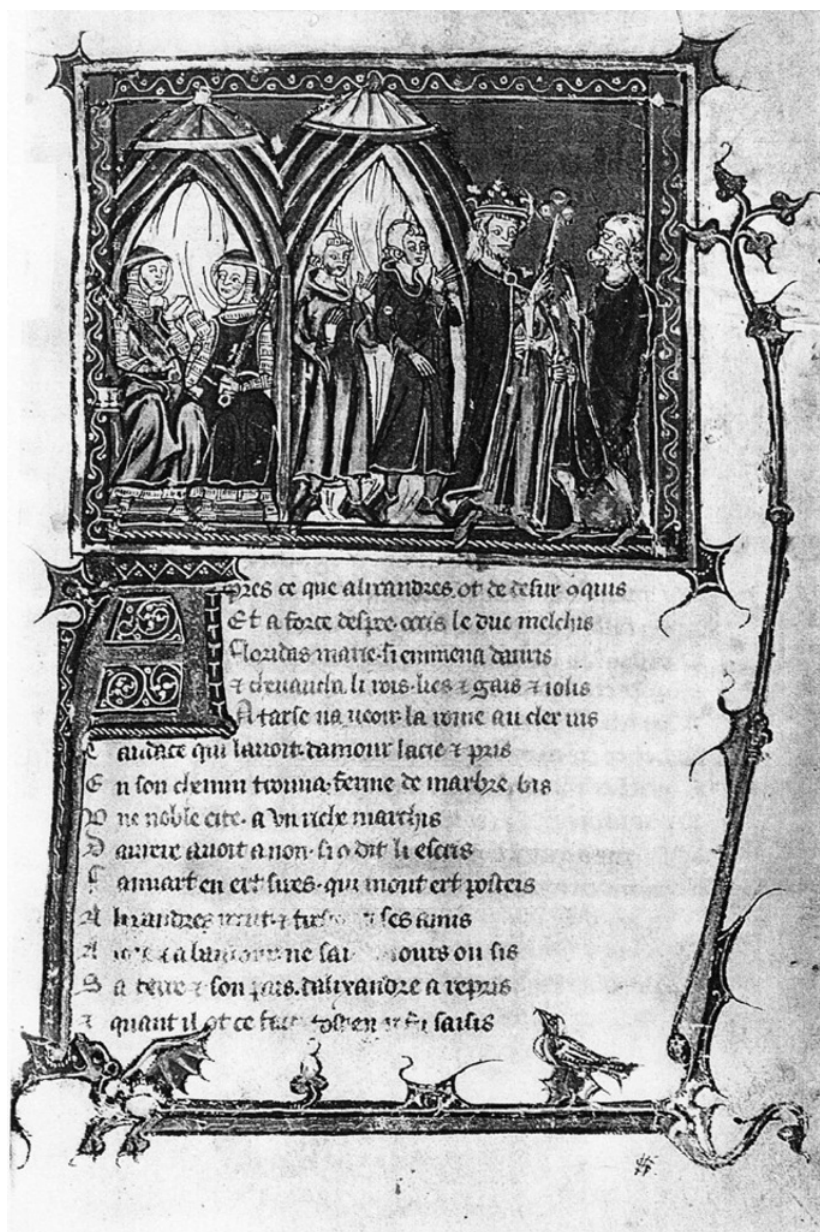 Apres ce que alixandres ot de desur ɔquis
Et a force despee occis le duc melchis
Floridas marie si emmena dauris
⁊ cheuaucha li rois lies ⁊ gais ⁊ iolis
A tarse ua ueoir la roine au cler uis
Candace qui lauoit damour lacie ⁊ pris
En son chemin trouua ferme de marbre bis
Vne noble cite a vn riche marchis
auoit a non si ɔ dit li escris
en ert sires qui mout ert posteis
Alixandres ses amis
ne sai iours ou sis
Sa terre ⁊ son pais dalixandre a repris
⁊ quant il ot ce saisis